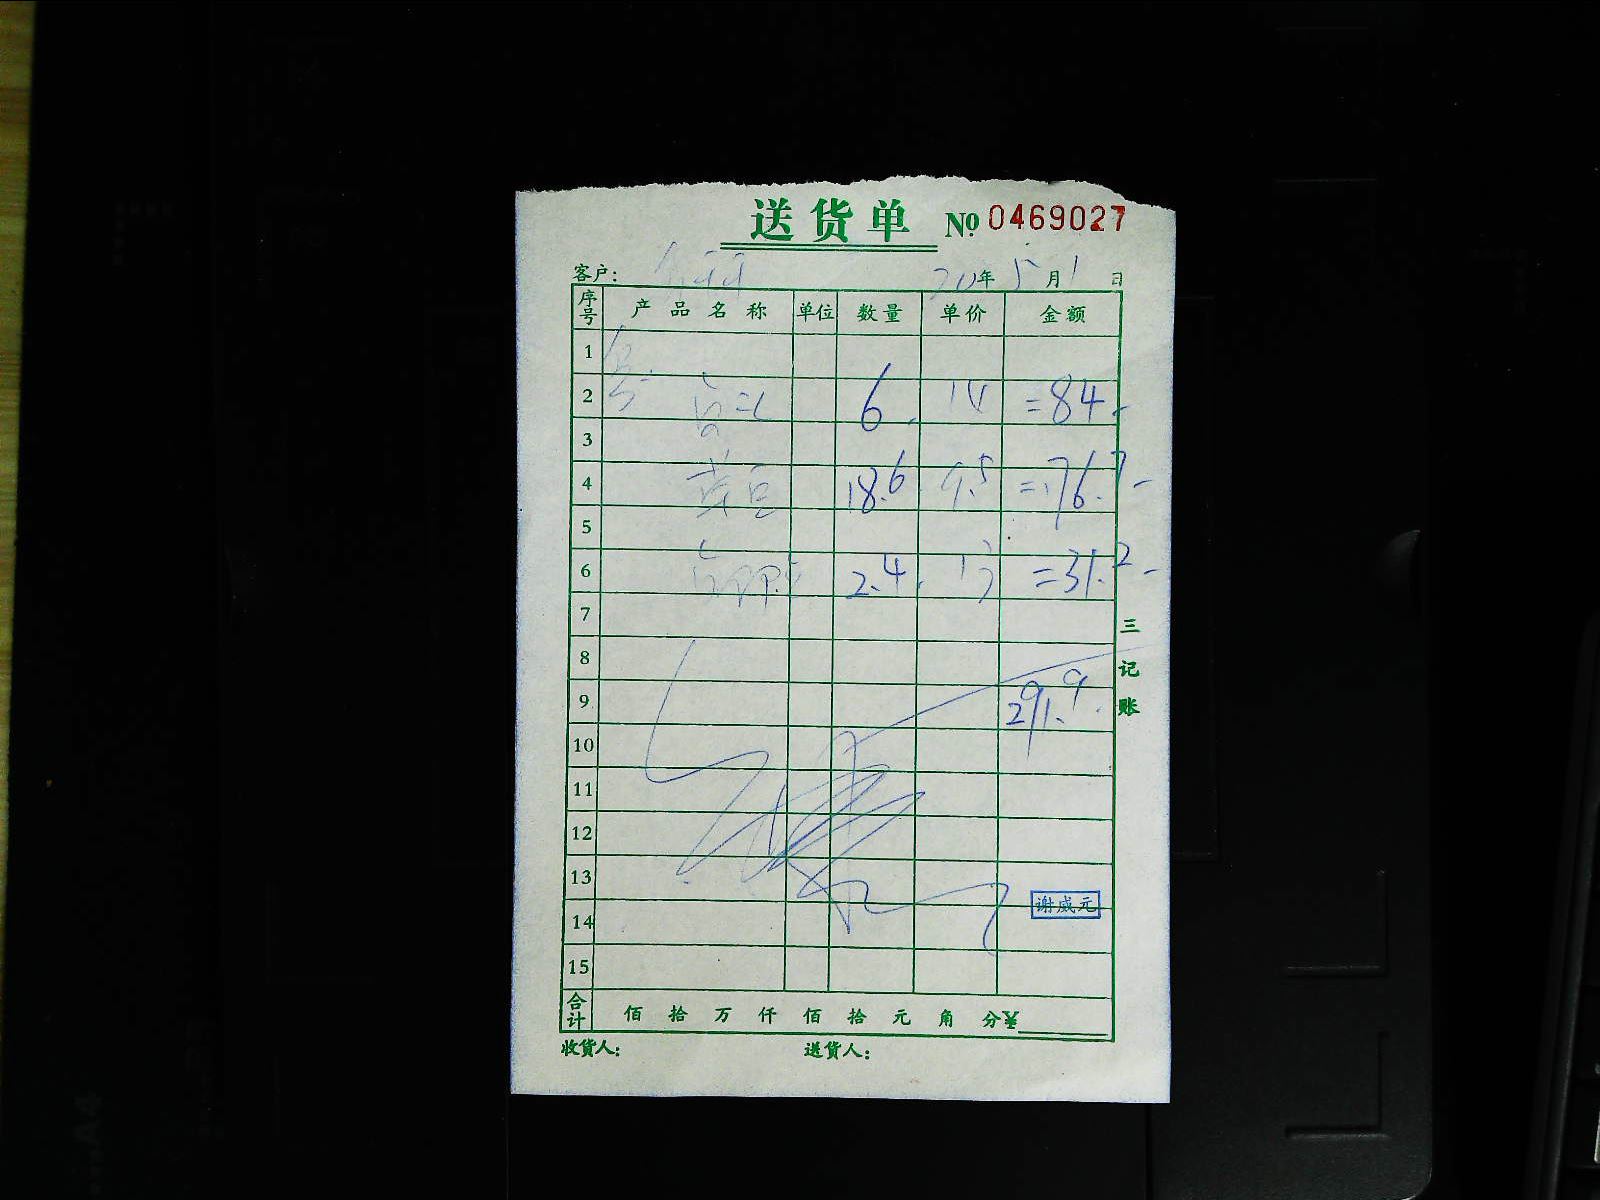 送货单 № 0469027
客户: 20年5月1日
序号 产品名称 单位 数量 单价 金额
1
2 6. 14 =84.-
3
4 18.6 9.5 =176.7-
5
6 2.4. 13 =31.2-
7
8
9 291.9.
10
11
12
13
谢威元
14
15
合计 佰 拾 万 仟 佰 拾 元 角 分¥
收货人: 送货人:
三记账